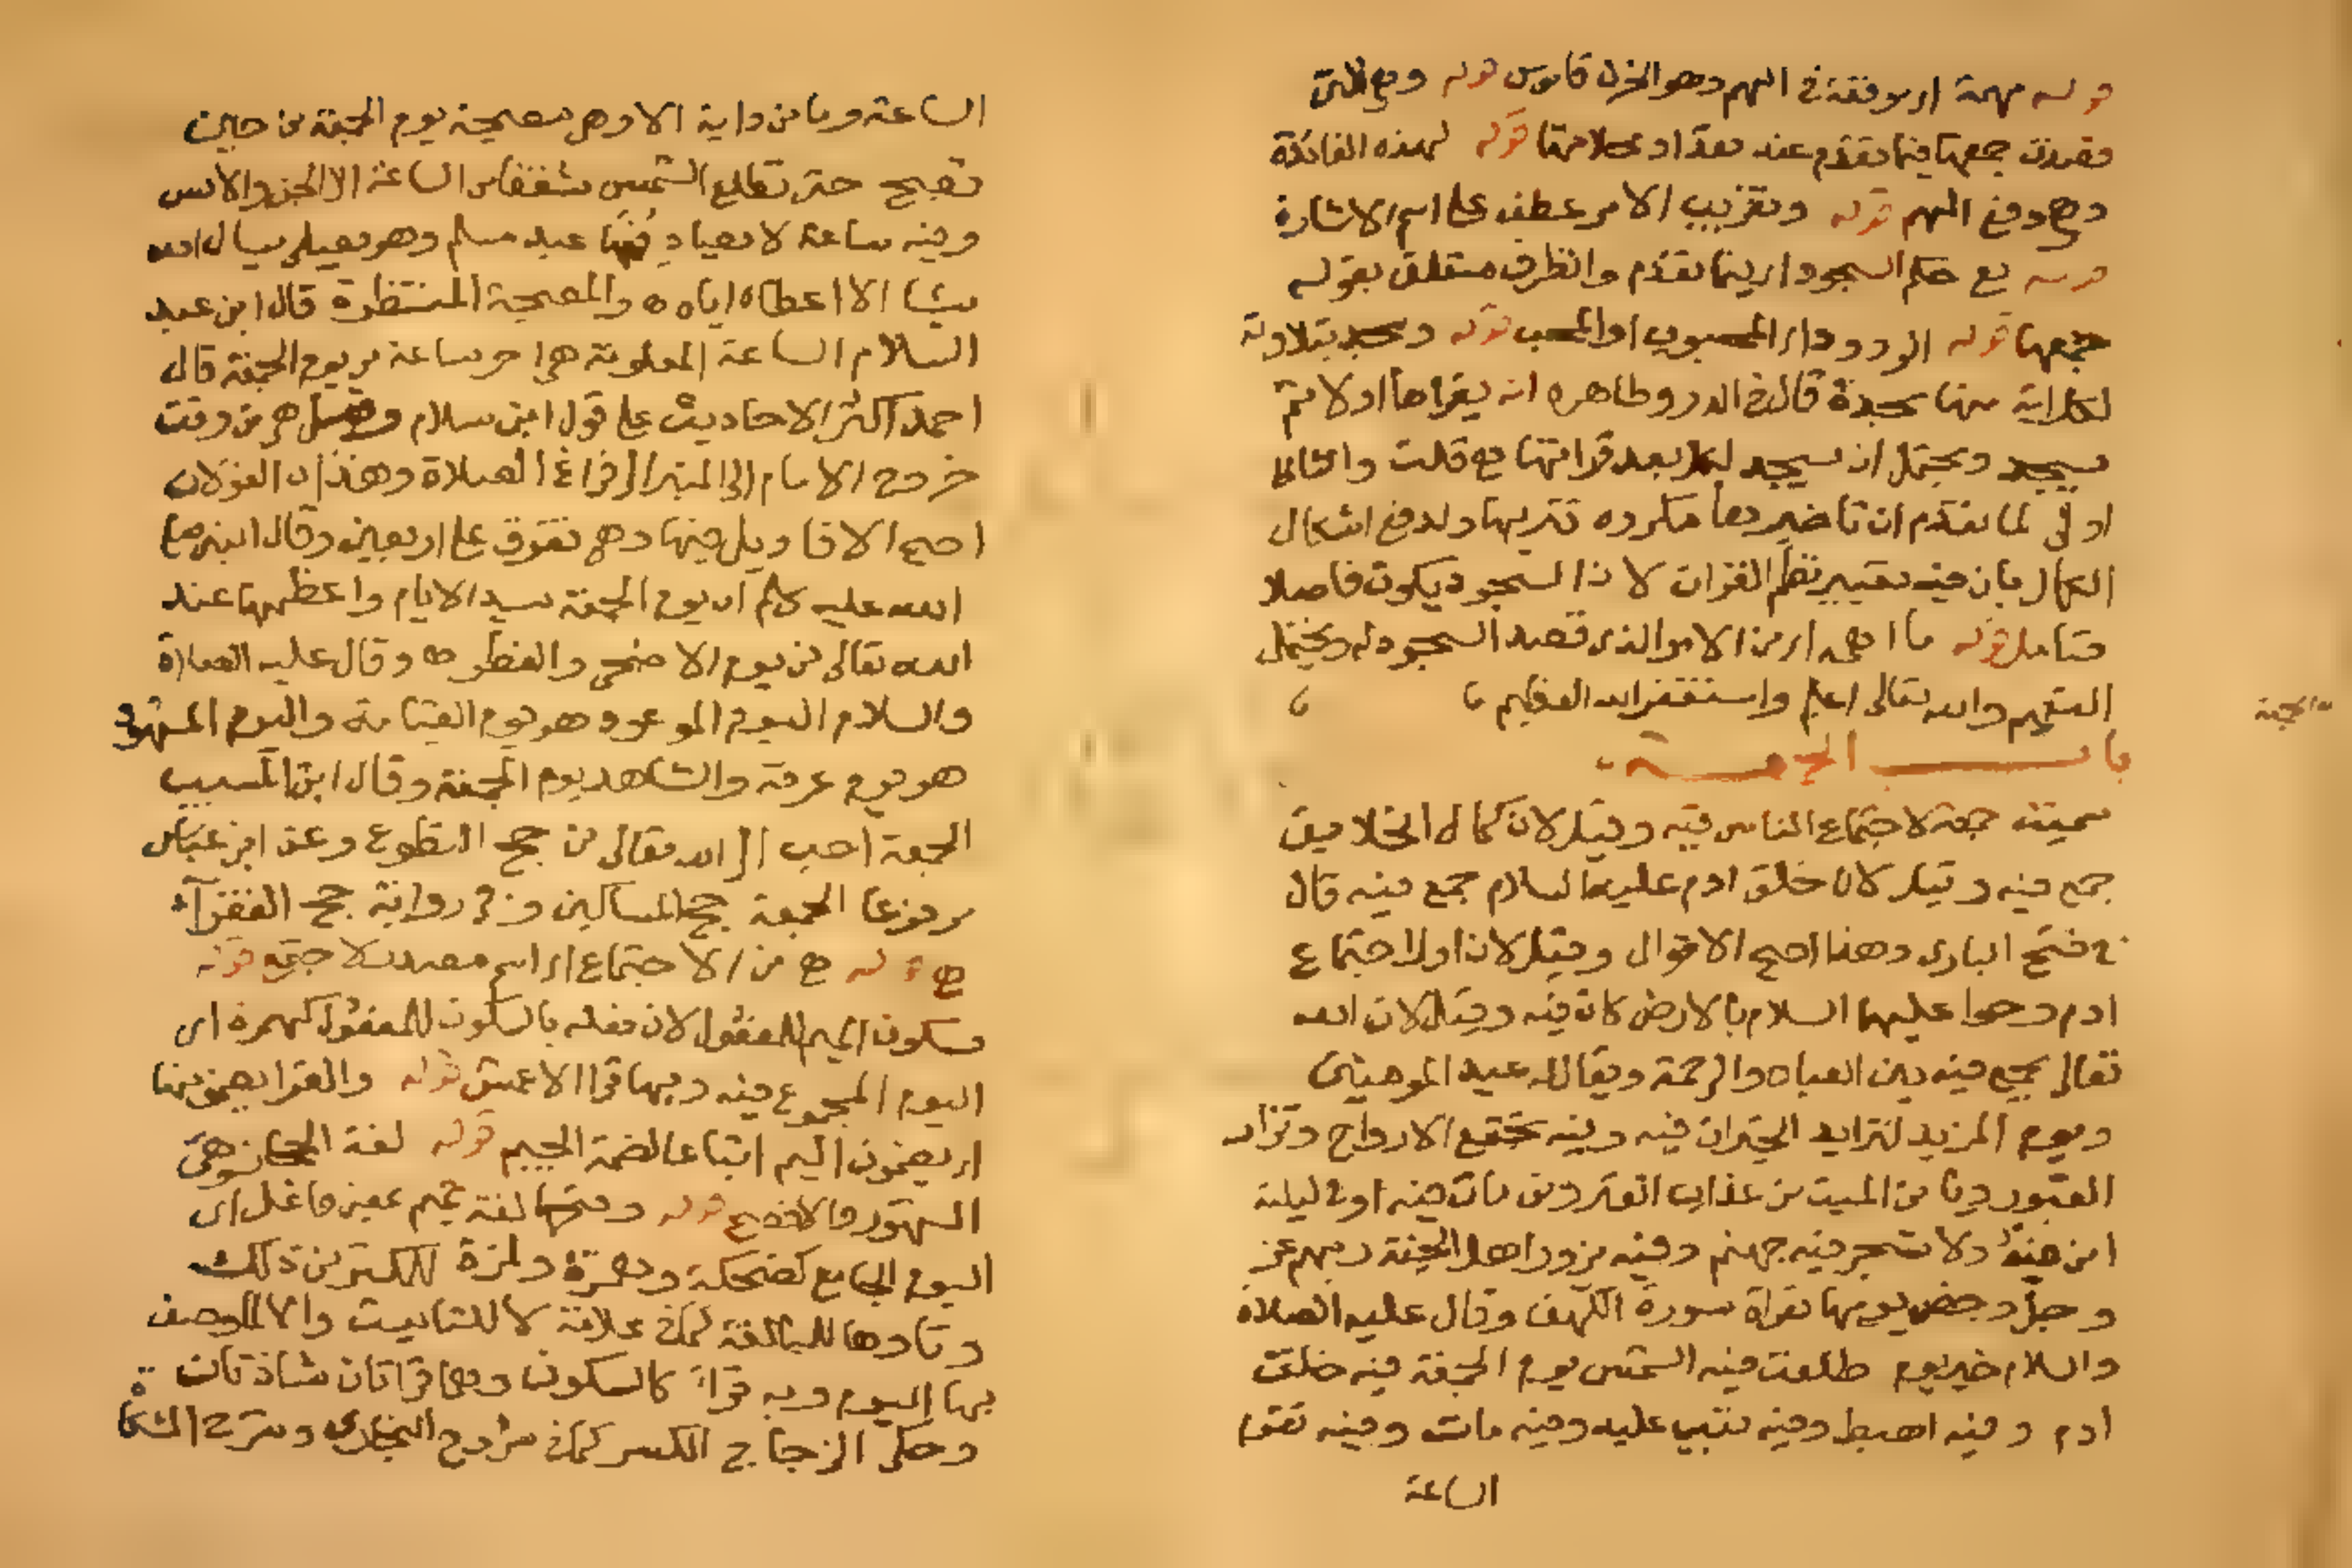 قوله مهمة اي موقعة في الهم وهو الحزن قاموس قوله وهي التي
قصدت جمعها فيما تقدم عند تعداد محلاتها قوله لهذه الفائدة
وهي دفع المهم قوله وتقريب الامر عطف على اسم الاشارة
قوله مع حكم السجود اي فيما تقدم والظرف متعلق بقوله
جمعها قوله الورود اي المحبوب او المحب قوله وسجد بتلاوته
لكل اية منها سجدة قال في الدر وظاهره انه يقراها اولا ثم
يسجد ويحتمل ان يسجد لكل بعد قراتها مع قلت والثاني
اولى لما تقدم ان تاخيرها مكروه تنزيها ولدفع اشكال
الكمال بان فيه تغيير نظم القران لان السجود يكون فاصلا
فتامل قوله ما اهمه اي من الامر الذي قصد السجود له ويحتمل
التعميم والله تعالى اعلم واستغفر الله العظيم
الجمعة
باب الجمعة
سميت جمعة لاجتماع الناس فيه وقيل لان كمال الخلايق
جمع فيه وقيل لان خلق ادم عليه السلام جمع فيه قال
في فتح الباري وهذا اصح الاقوال وقيل لان اول اجتماع
ادم وحوا عليهما السلام بالارض كان فيه وقيل لان الله
تعالى يجمع فيه بين العباد والرحمة ويقال له عيد المومنين
ويوم المزيد لتزايد الخيرات فيه وفيه تجتمع الارواح وتزار
القبور ويامن الميت من عذاب القبر ومن مات فيه او في ليلته
امن منه ولا تسجر فيه جهنم وفيه يزور اهل الجنة ربهم عز
وجل وخص يومها بقراة سورة الكهف وقال عليه الصلاة
والسلام خير يوم طلعت فيه الشمس يوم الجمعة فيه خلق
ادم وفيه اهبط وفيه تيب عليه وفيه مات وفيه تقوم
الساعة
الساعة وما من دابة الا وهي مصيحة يوم الجمعة من حين
تصبح حتى تطلع الشمس شفقا من الساعة الا الجن والانس
وفيه ساعة لا يصادفها عبد مسلم وهو يصلي يسال الله
شيا الا اعطاه اياه والمصيحة المنتظرة قال ابن عبد
السلام الساعة المعلومة هي اخر ساعة من يوم الجمعة قال
احمد اكثر الاحاديث على قول ابن سلام وقيل هي من وقت
خروج الامام الى المنبر الى فراغ الصلاة وهذان القولان
اصح الاقاويل فيها وهي تفوق على اربعين وقال النبي صلى
الله عليه وسلم ان يوم الجمعة سيد الايام واعظمها عند
الله تعالى من يوم الاضحى والفطر وقال عليه الصلاة
والسلام اليوم الموعود هو يوم القيامة واليوم المشهود
هو يوم عرفة والشاهد يوم الجمعة وقال ابن المسيب
الجمعة احب الى الله تعالى من حج التطوع وعن ابن عباس
مرفوعا الجمعة حج المساكين وفي رواية حج الفقراء
ح قوله ح من الاجتماع اي اسم مصدر لاجتمع قوله
بسكون الميم للمفعول لان فعله بالسكون للمفعول كهمزة اي
اليوم المجموع فيه وبها قرا الاعمش قوله والقرا يضمونها
اي يضمون الميم اتباعا لضمة الجيم قوله لغة الحجاز وهي
المشهور فالافصح قوله وفتحها لغة تميم بمعنى فاعل اي
اليوم الجامع كضحكة وهمزة ولمزة للمكثر من ذلك
وتاوها للمبالغة كما في علامة لا للتانيث والا لما وصف
بها اليوم وبه قرئ كالسكون وهما قراتان شاذتان
وحكى الزجاج الكسر كما في شروح البخاري وشرح المشكاة